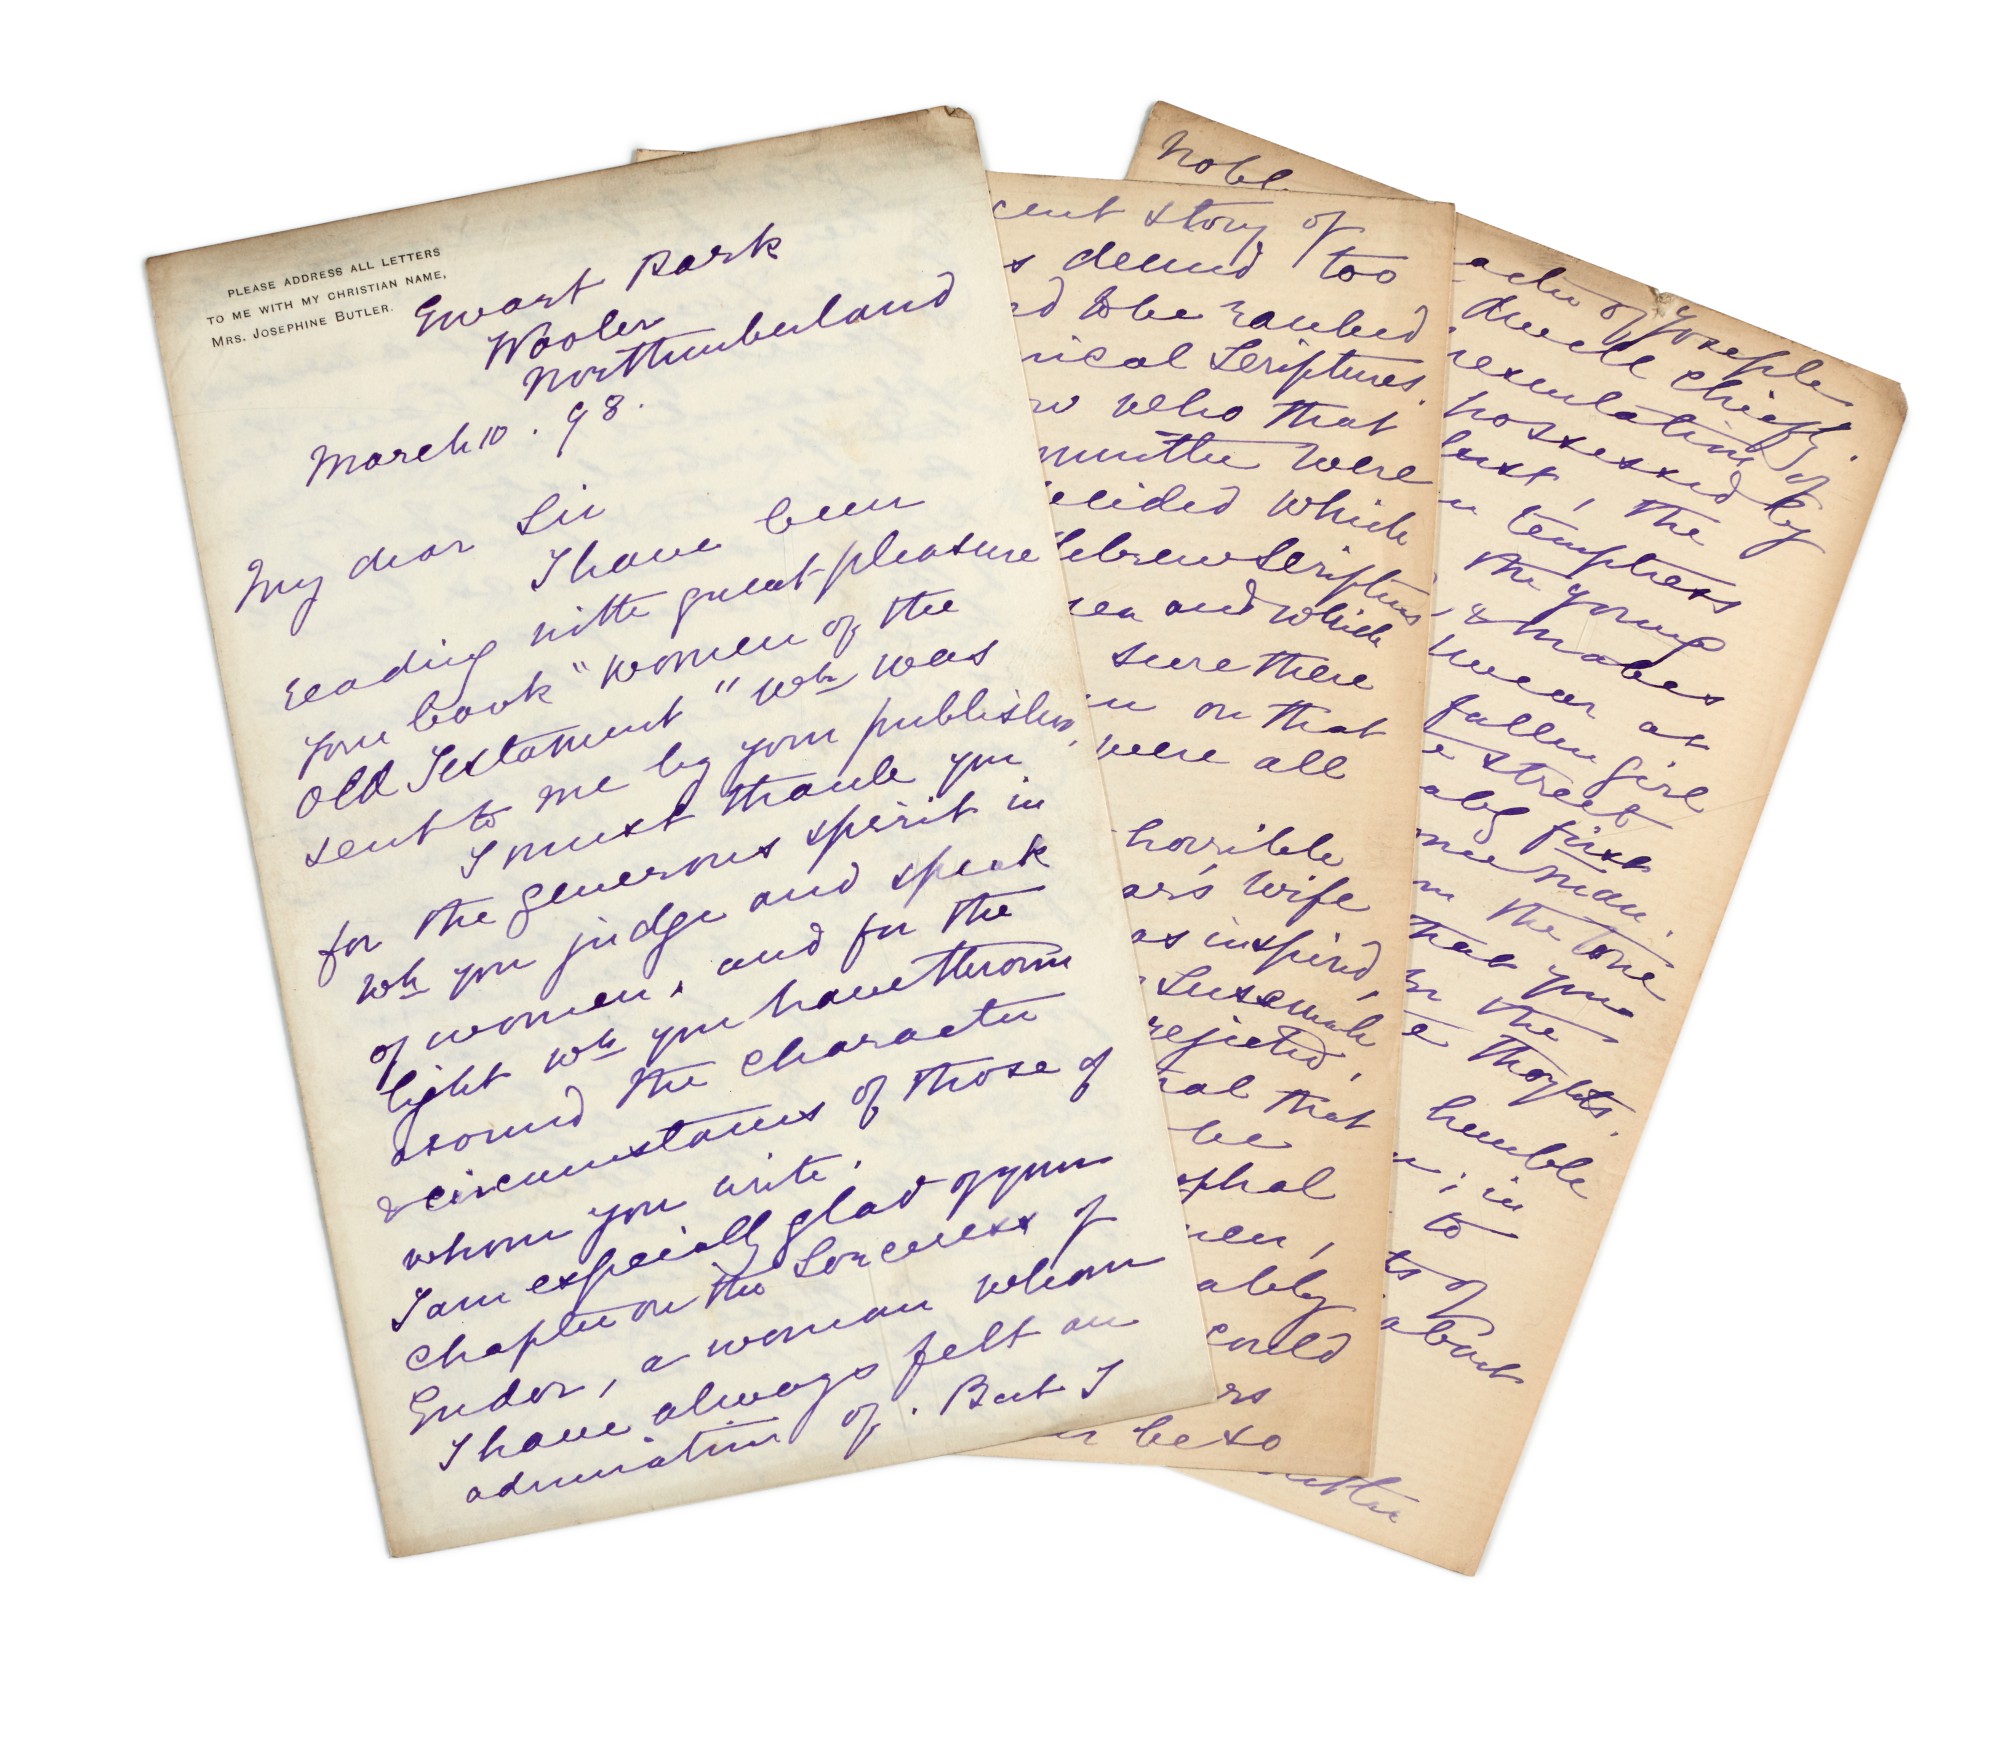 PLEASE ADDRESS ALL LETTERS
TO ME WITH MY CHRISTIAN NAME,
MRS. JOSEPHINE BUTLER.
Ewart Park
Wooler
Northumberland
March 10. 98.
My dear Sir
I have been
reading with great pleasure
your book "Women of the
Old Testament" wh was
sent to me by your publisher.
I must thank you
for the generous spirit in
wh you judge and speak
of women, and for the
light wh you have thrown
around the character
& circumstances of those of
whom you write.
I am especially glad of your
chapter on the Sorceress of
Endor, a woman whom
I have always felt an
admiration of. But I
cent story of
s deemed too
d to be ranked
nical Scriptures.
w who that
mmittee were
ecided which
Hebrew Scriptures
and which
sure there
on that
were all
horrible
ar's wife
as inspired,
Susannah
rejected,
that
be
phal
men,
ably
could
rs
be so
Nobl
of Joseph
dwell chiefly
of
possessed by
lust, the
temptress
the young
& makes
at
fallen girl
street
first
man.
the tone
that you
the
thoghts,
humble
; in
to
ts of
about